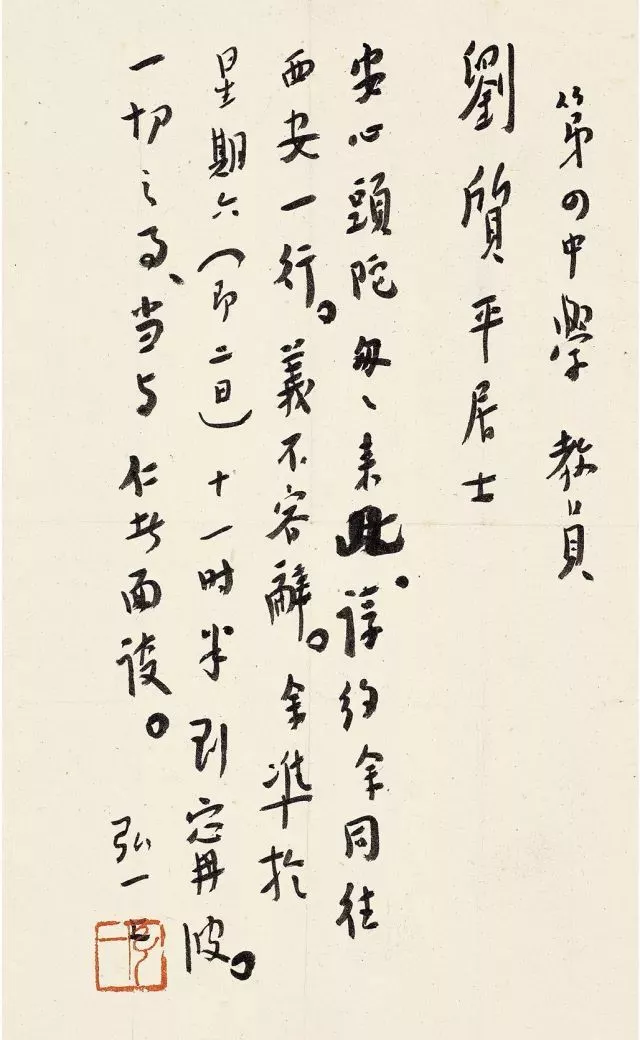 第四中學 教員
劉質平居士
安心頭陀匆、来此。諄約余同往
西安一行。義不容辭。余準於
星期六(即二日)十一时半到甯波。
一切之事、当与仁者面談。
弘一上